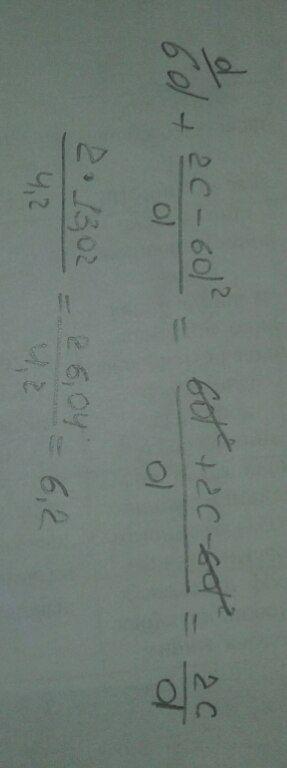 6d^{\d} + \frac{2c - 6d^2}{d} = \frac{6d^2 + 2c - 6d^2}{d} = \frac{2c}{d}
\frac{2 \cdot 13,02}{4,2} = \frac{26,04}{4,2} = 6,2